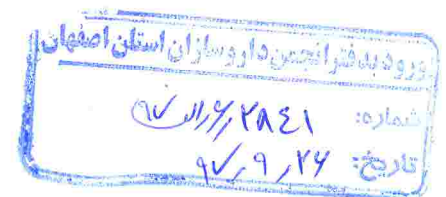 ورود به دفتر انجمن داروسازان استان اصفهان
شماره: ۲۸۴۱
تاریخ: ۹۷٫۹٫۲۶